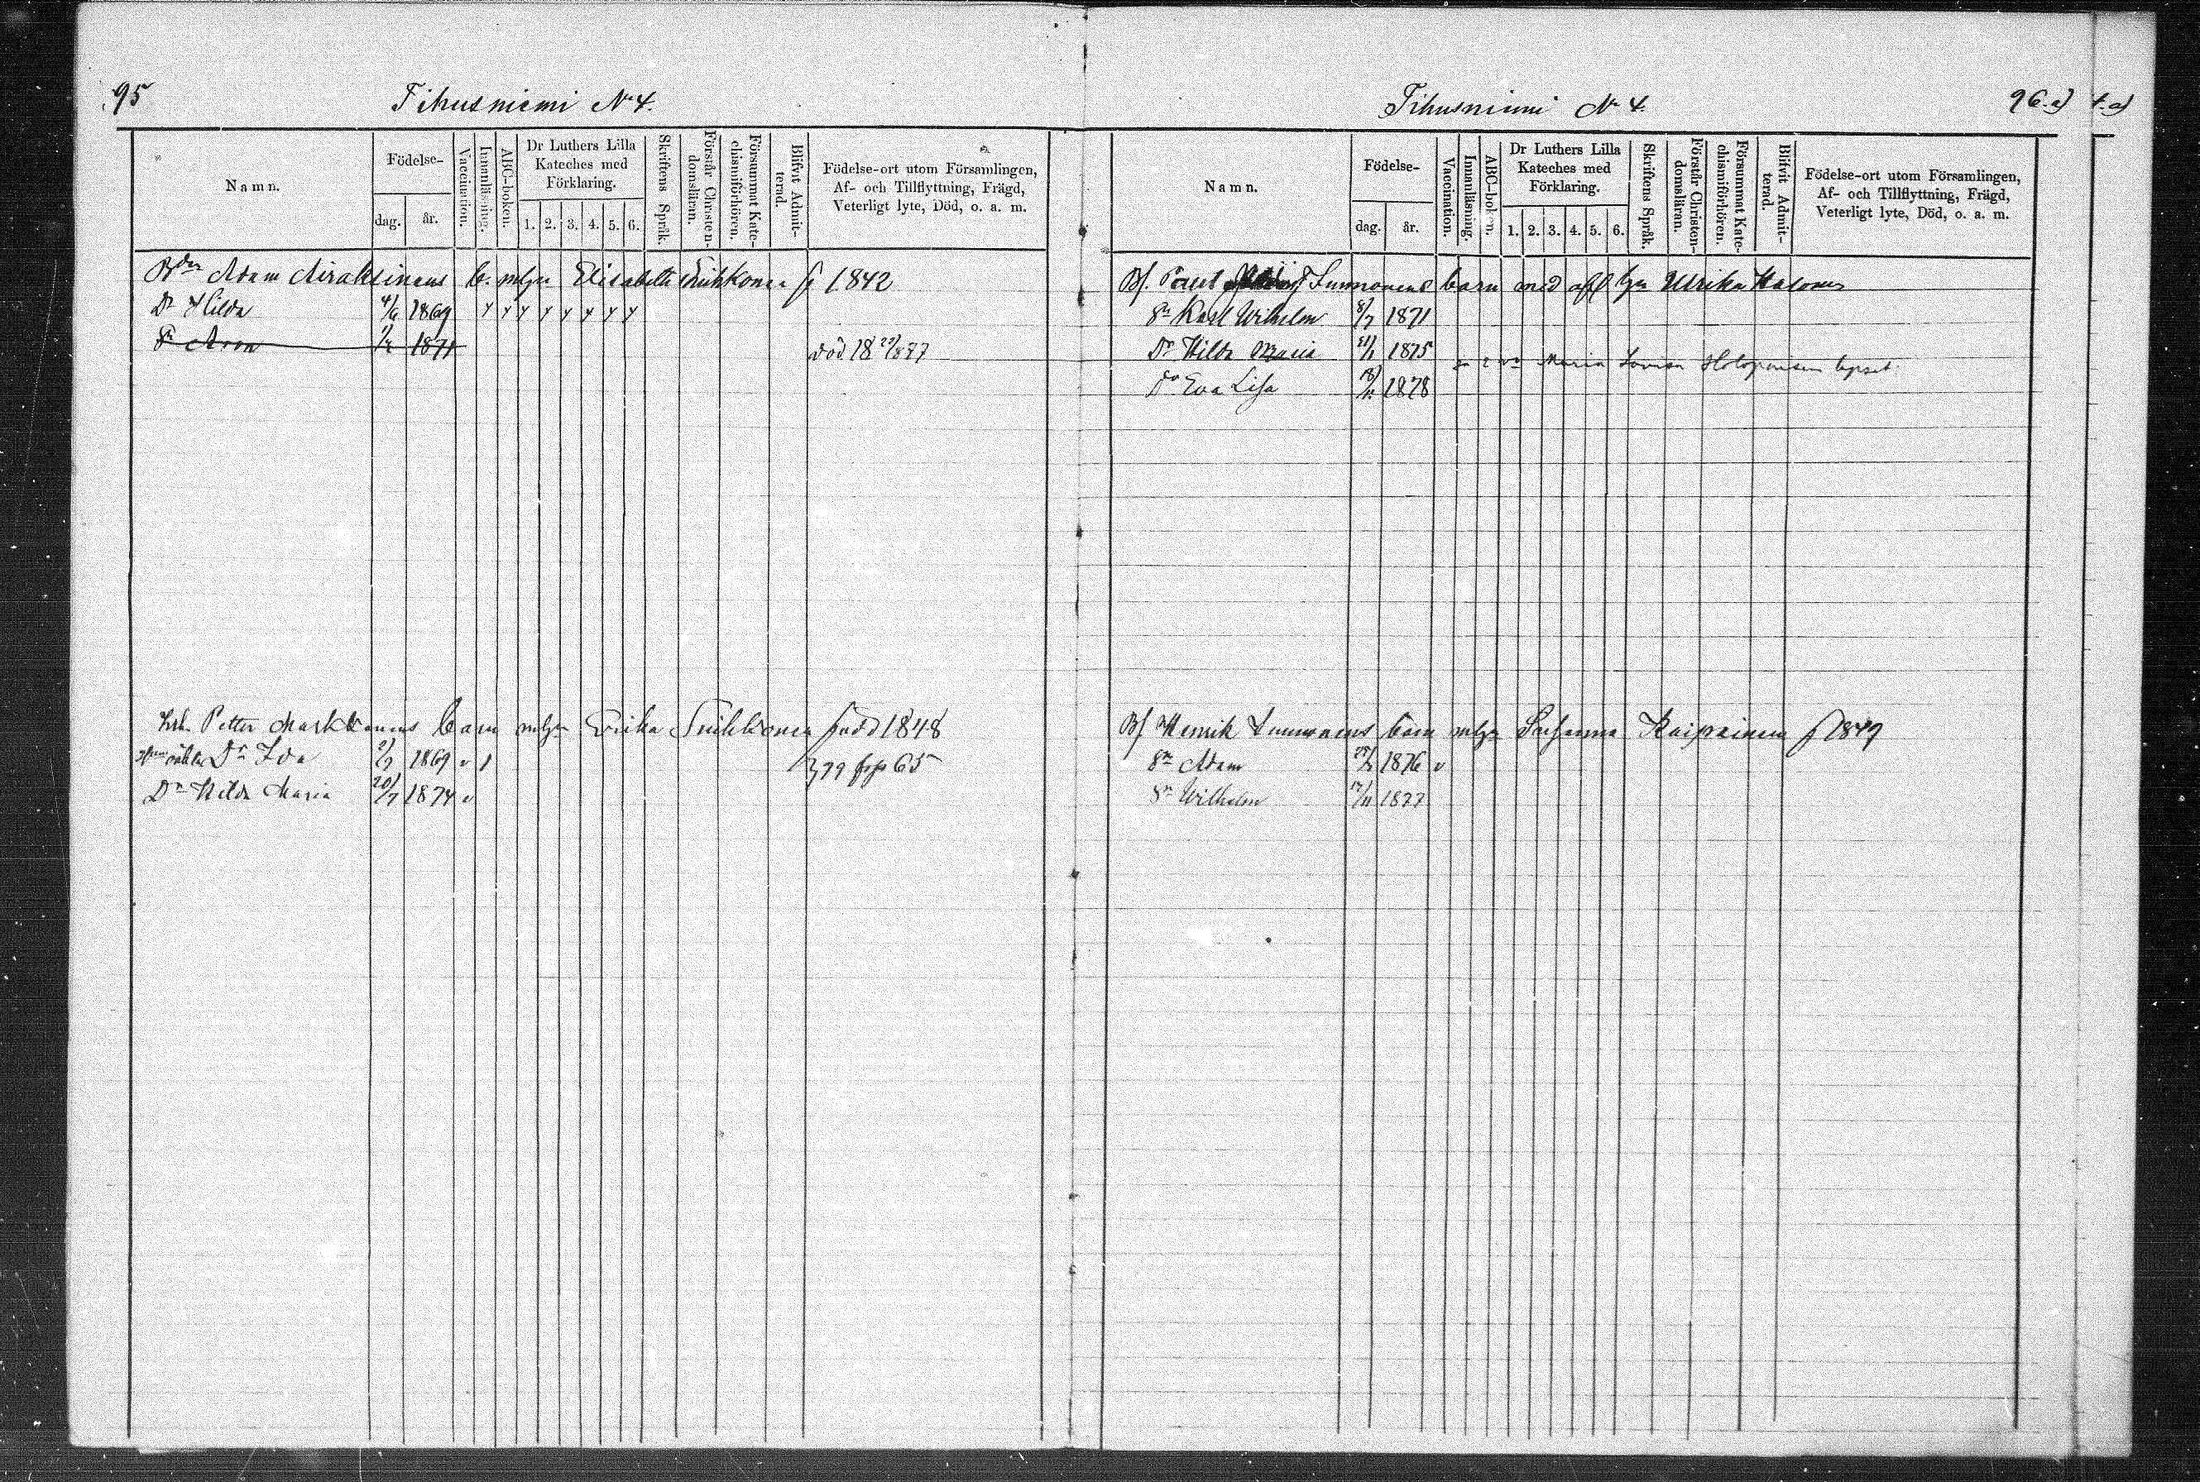 95
Tihusniemi No 4.
Namn.
Födelse-
dag.
år.
Vaccination.
Innanläsning.
ABC-boken.
Dr Luthers Lilla
Kateches med
Förklaring.
1. 2. 3. 4. 5. 6.
Skriftens Språk.
Förstår Christen-
domsläran.
Försummat Kate-
chismiförhören.
Blifvit Admit-
terad.
Födelse-ort utom Församlingen,
Af- och Tillflyttning, Frägd,
Veterligt lyte, Död, o. a. m.
Adam Airaksinens b. m. Elisabetta f 1842
Dr Hilda 4/6 1869
Sn Aron 1871
död 18 /877
Petter Markkanens barn Erika född 1848
Dr Ida 1869 v
/79 pag 65
Dr Hilda Maria 20/7 1874 v
Tihusniemi No 4.
96.a)
Namn.
Födelse-
dag.
år.
Vaccination.
Innanläsning.
ABC-boken.
Dr Luthers Lilla
Kateches med
Förklaring.
1. 2. 3. 4. 5. 6.
Skriftens Språk.
Förstår Christen-
domsläran.
Försummat Kate-
chismiförhören.
Blifvit Admit-
terad.
Födelse-ort utom Församlingen,
Af- och Tillflyttning, Frägd,
Veterligt lyte, Död, o. a. m.
Paul barn med afl. Ulrika Halonen
Sn Karl Wilhelm 8/7 1871
Dr Hilda Maria 1875
Maria Lovisa Holopaisen lapset
Dr Eva Lisa 1878
Henrik barn Susanna Kaipainen f 1849
Sn Adam 1876 v
Sn Wilhelm 17/11 1877